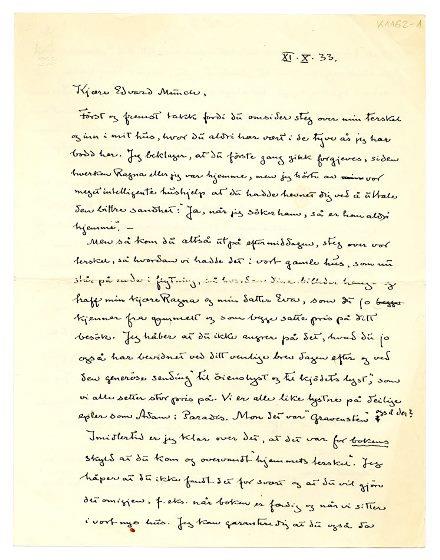 K 1162-1
XI . X . 33.
Kjære Edvard Munch.
Först og fremst takk fordi du omsider steg over min terskel
og inn i mit hus, hvor du aldri har vært i de tyve år jeg har
bodd her. Jeg beklager, at du första gang gikk forgjeves, siden
hverken Ragna eller jeg var hjemme, men jeg hörte av vor
meget intelligente hushjelp at du hadde hevnet dig ved å uttale
den bittre sandhet: "Ja, när jeg söker ham, så er han aldri
hjemme". —
Men så kom du altså ut på eftermiddagen, steg over vor
terskel, så hvordan vi hadde det i vort gamle hus, som nu
står på ende i flytning, så hvordan dine billeder hang - og
traff min kjære Ragna og min datter Eva, som du jo
kjenner fra gammelt og som begge satte pris på ditt
besök. Jeg håber at du ikke angrer på det, hvad du jo
også har bevidnet ved ditt venlige brev dagen efter og ved
den generöse sending "til öienslyst og til kjödets lyst", som
vi alle setter stor pris på. Vi er alle like lystne på deilige
epler som Adam i Paradis. Mon det var "Gravensten" også der?
Imidlertid er jeg klar over det, at det var for bokens
skyld at du kom og overvandt "hjemmets terskel". Jeg
håper at du ikke fandt det for svårt og at du vil gjöre
det omigjen, f. eks. når boken er færdig og når vi sitter
i vort nye hus. Jeg kan garantere dig at du også da